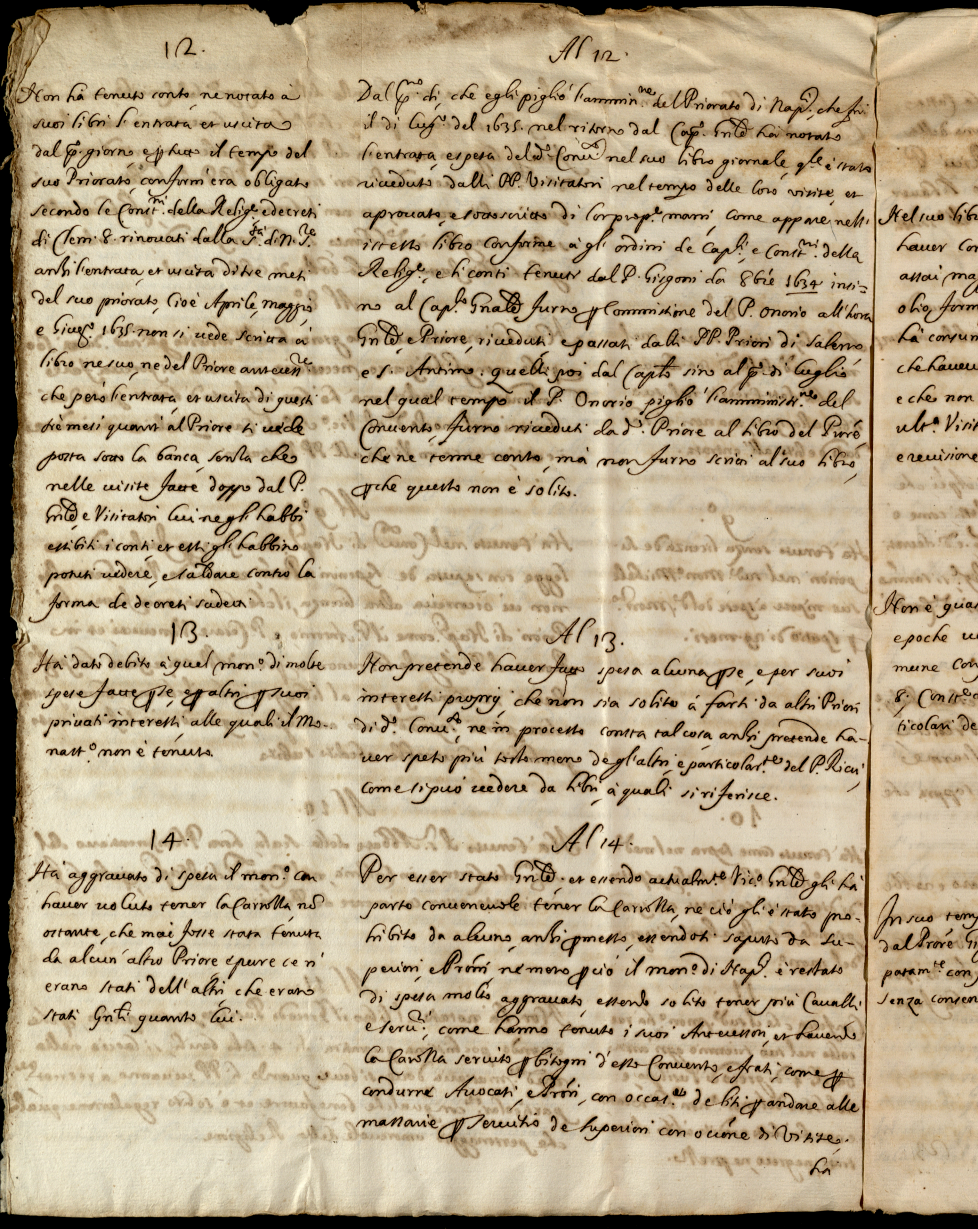 12.
Non ha tenuto conto, ne notato à
suoi libri l'entrata et uscita
dal p.º giorno e per tutto il tempo del
suo Priorato, conform'era obligato
secondo le Const.ni della Relig.e e decreti
di Clem. 8. rinouati dalla S.tà di N. S.re
anzi l'entrata, et uscita di tre mesi
del suo priorato, cioè Aprile, maggio
e Giug.º 1635. non si vede scritta à
libro ne suo, ne del Priore antecess.re
che però l'entrata, et uscita di questi
tre mesi quant'al Priore si uede
posta sotto la banca, senza che
nelle uisite fatte doppo dal P.
Gñle e Visitatori lui ne gli habbi
essibiti i conti, et essi gli habbino
potuti uedere, e saldare contro la
forma de decreti sudeti
13.
Ha dato debito à quel mon.º di molte
spese fatte per se, e per altri per suoi
privati interessi alle quali il Mo-
nast.º non è tenuto.
14.
Ha aggravato di spesa il mon.º con
hauer uoluto tener la Carrozza, nõ
ostante, che mai fosse stata tenuta
da alcun'altro Priore epure ce n'
erano stati dell'altri, che erano
stati Gñli quanto lui.
Al 12.
Dal p.mo dì, che egli pigliò l'ammin.ne del Priorato di Nap., che fu
il dì Lug.º del 1635. nel ritorno dal Cap.º Gñle ha notato
l'entrata, e spesa del d.º Conu.to nel suo libro giornale, qle è stato
riueduto dalli PP. Visitatori nel tempo delle loro visite, et
aprouato, e sottoscritto di lor prop.e mani, come appare nell'
istesso libro conforme à gli ordini de Cap.li e Const.ni della
Relig.e, e li conti tenuti dal P. Gisgoni da 8bre 1634 insi=
no al Cap.lo Gnale furno per Commissione del P. Onorio all'hora
Gñle, e Priore, riueduti, e passati dalli PP. Priori di Salerno
e S. Antimo; quelli poi dal Caplo sino al p.º di luglio
nel qual tempo il P. Onorio pigliò l'amministr.ne del
Conuento, furno riueduti da d.º Priore al libro del Prorẽ,
che ne tenne conto, mà non furno scritti al suo libro,
perche questo non è solito.
Al 13.
Non pretende hauer fatto spesa alcuna per se, e per suoi
interessi proprij, che non sia solito à farsi da altri Priori
di d.º Conu.to, ne in processo consta tal cosa, anzi pretende ha-
uer speso più tosto meno degl'altri, e particolar.te del P. Ricci,
come si può uedere da libri, à quali si riferisce.
Al 14.
Per esser stato Gñle, et essendo actualm.te Vic.º Gñle gli hà
parso conueneuole tener la Carrozza, ne ciò gli è stato pro-
hibito da alcuno, anzi permesso, essendosi saputo da Su-
periori, e Prõri ne meno per ciò il mon.º di Nap. è restato
di spesa molto aggrauato, essendo solito tener più Caualli
e seru.i, come hanno tenuto i suoi Antecessori, et hauendo
la Carozza seruito per bisogni d'esto Conuento, e frati, come per
condurne Auocati, e Prõri, con occas.ne de liti per andare alle
massarie per seruitio de superiori con ocõne di Visite.
ha
Nel suo libro
hauer con
assai ma
olio, form
hà consum
che haueu
e che non
ult.º Visit
e reuisione
Non è quas
epoche u
mune Con
8. Const.e
ticolari de
In suo temp
dal Prorẽ Gi
patam.te con
senza consen